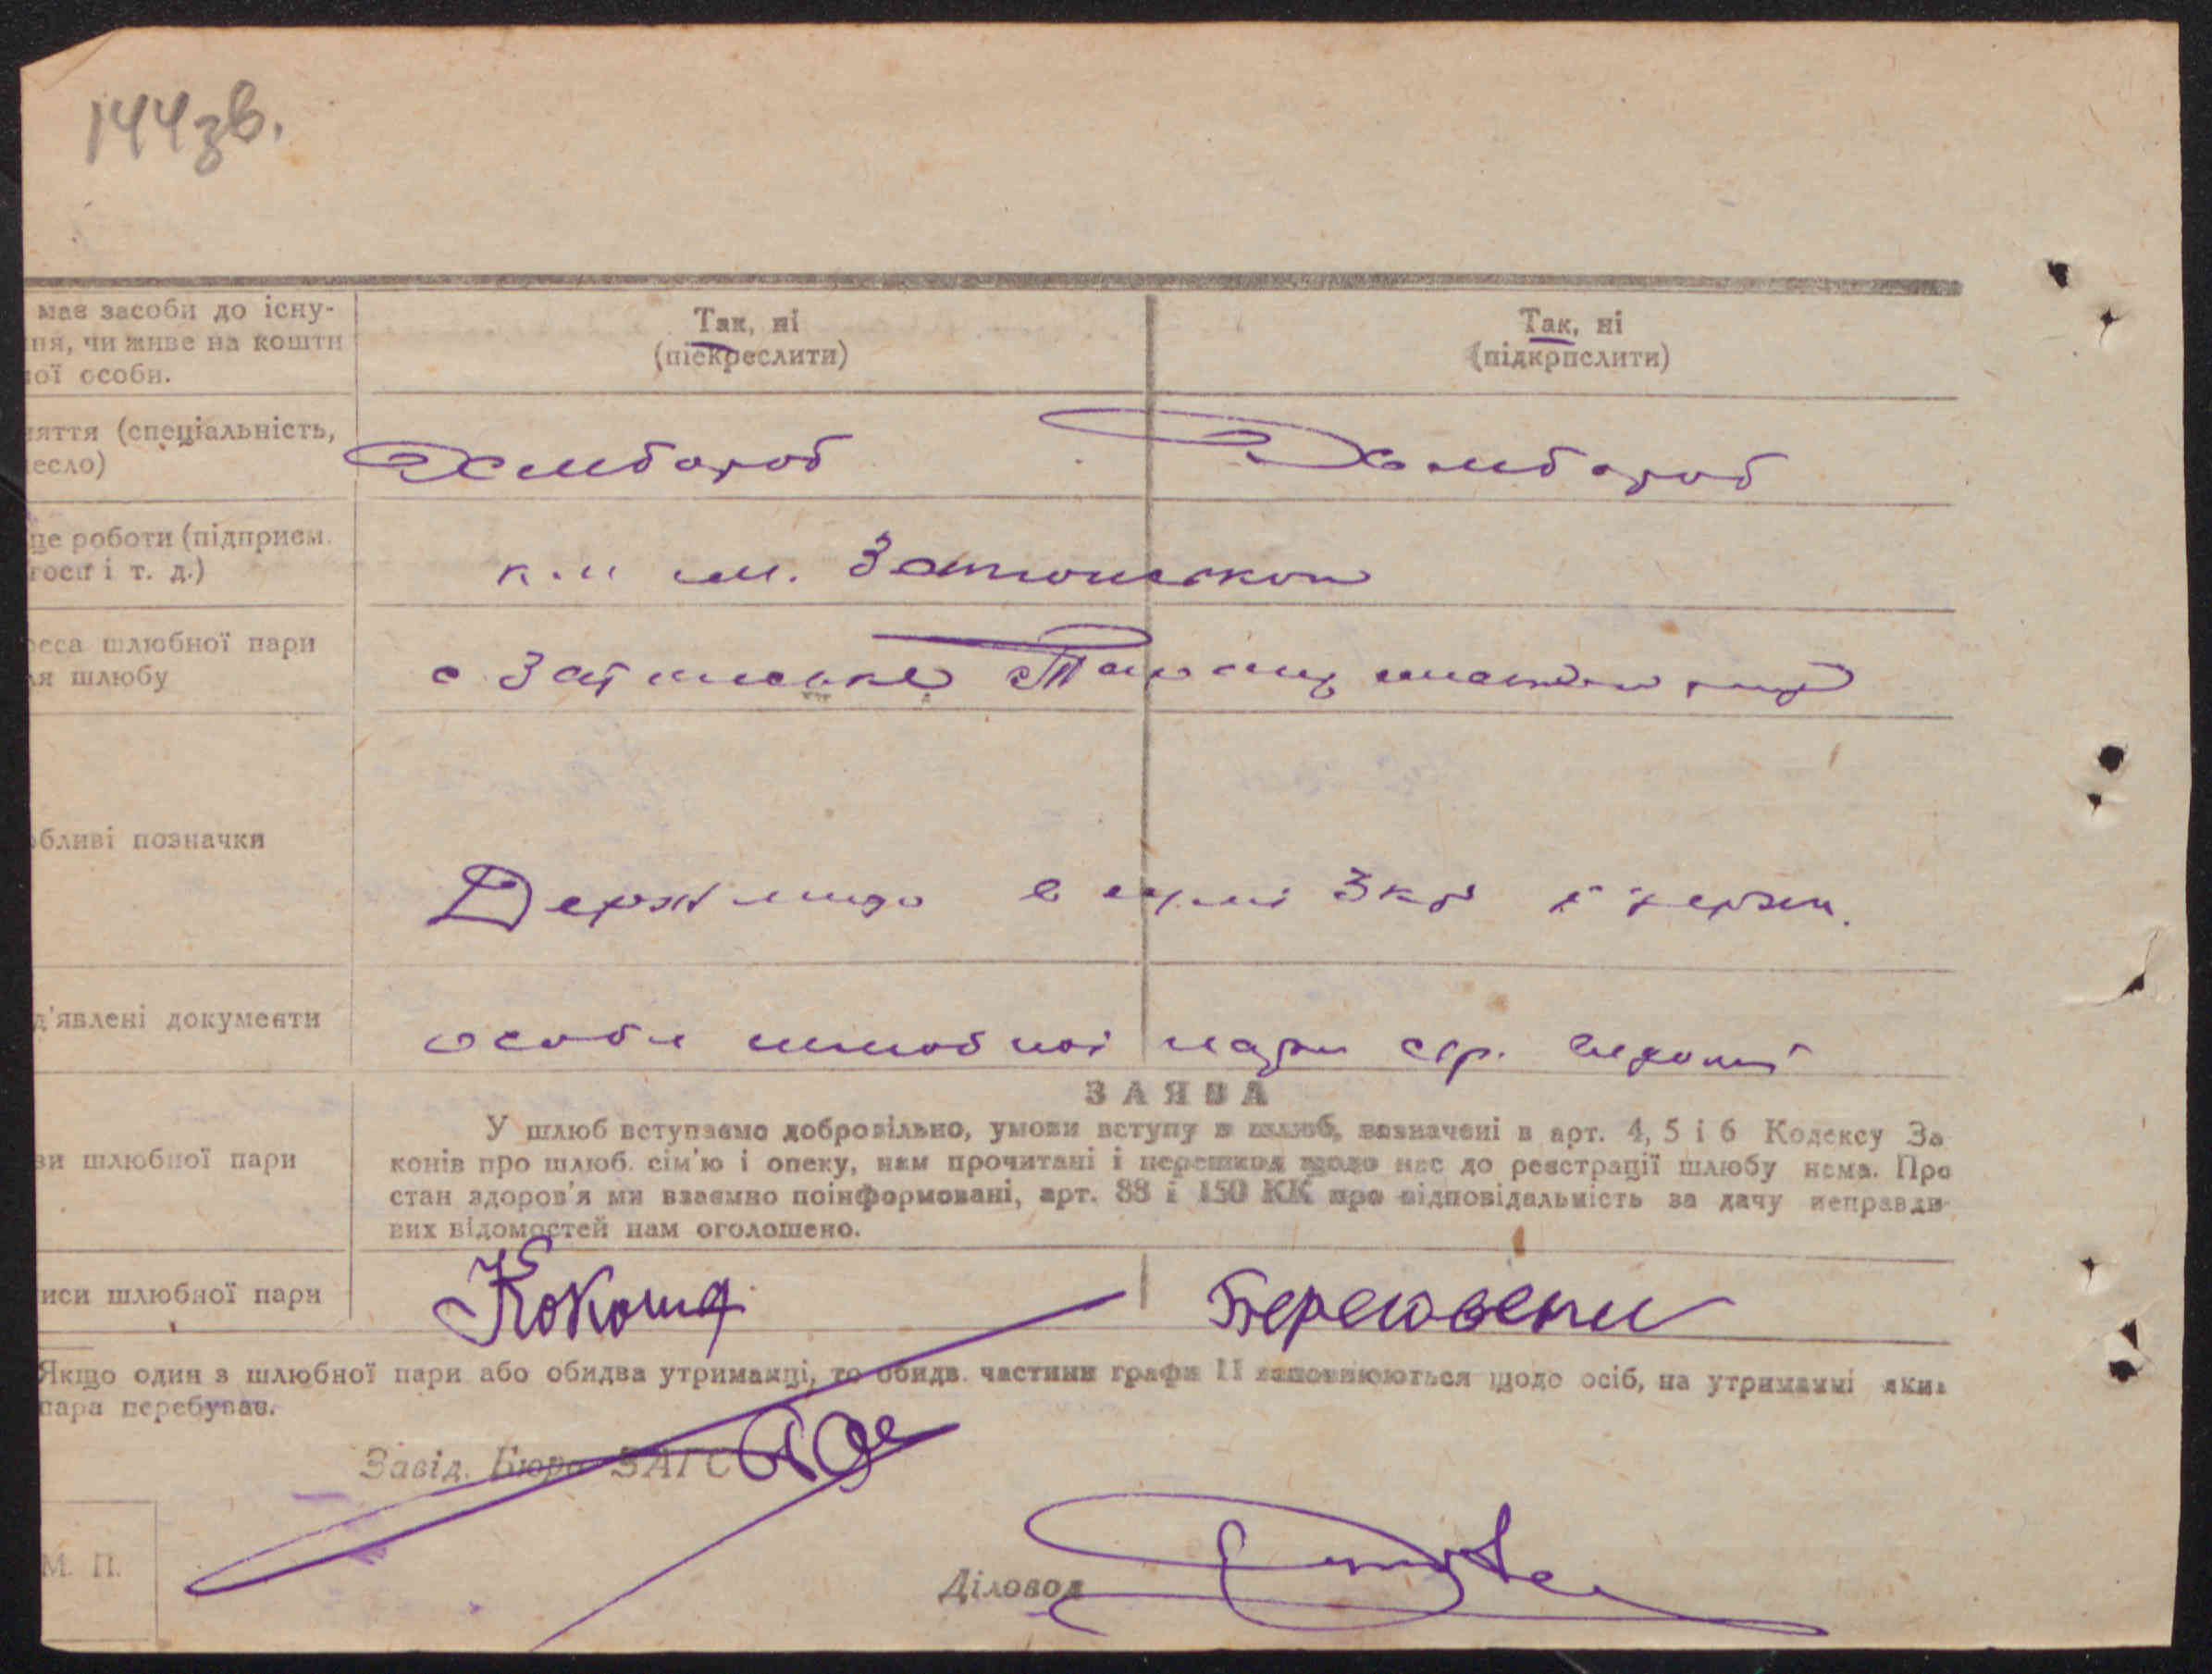 144зв.
має засоби до існу-
ня, чи живе на кошти
ої особи.
Так, ні
(піскреслити)
Так, ні
(підкрпслити)
няття (спеціальність,
есло)
Хлібороб
Хлібороб
це роботи (підприєм.
госп і т. д.)
к.п ім. Затонськог
реса шлюбної пари
ля шлюбу
с Затишьке
обливі позначки
Держмито в сумі 3 крб
д'явлені документи
особи шлюбної пари с/р. відомі
ЗАЯВА
ви шлюбної пари
У шлюб вступаємо добровільно, умови вступу в шлюб, возначені в арт. 4, 5 і 6 Кодексу За
конів про шлюб. сім'ю і опеку, нам прочитані і перешкод щодо нас до реєстрації шлюбу нема. Про
стан здоров'я ми взаємно поінформовані, арт. 88 і 150 КК про відповідальність за дачу неправди
вих відомостей нам оголошено.
иси шлюбної пари
Кокоша
Якщо один з шлюбної пари або обидва утриманці, то обидв. частини графи 11 заповнюються щодо осіб, на утриманні яких
пара перебуває.
Завід. Бюро ЗАГС
М. П.
Діловод